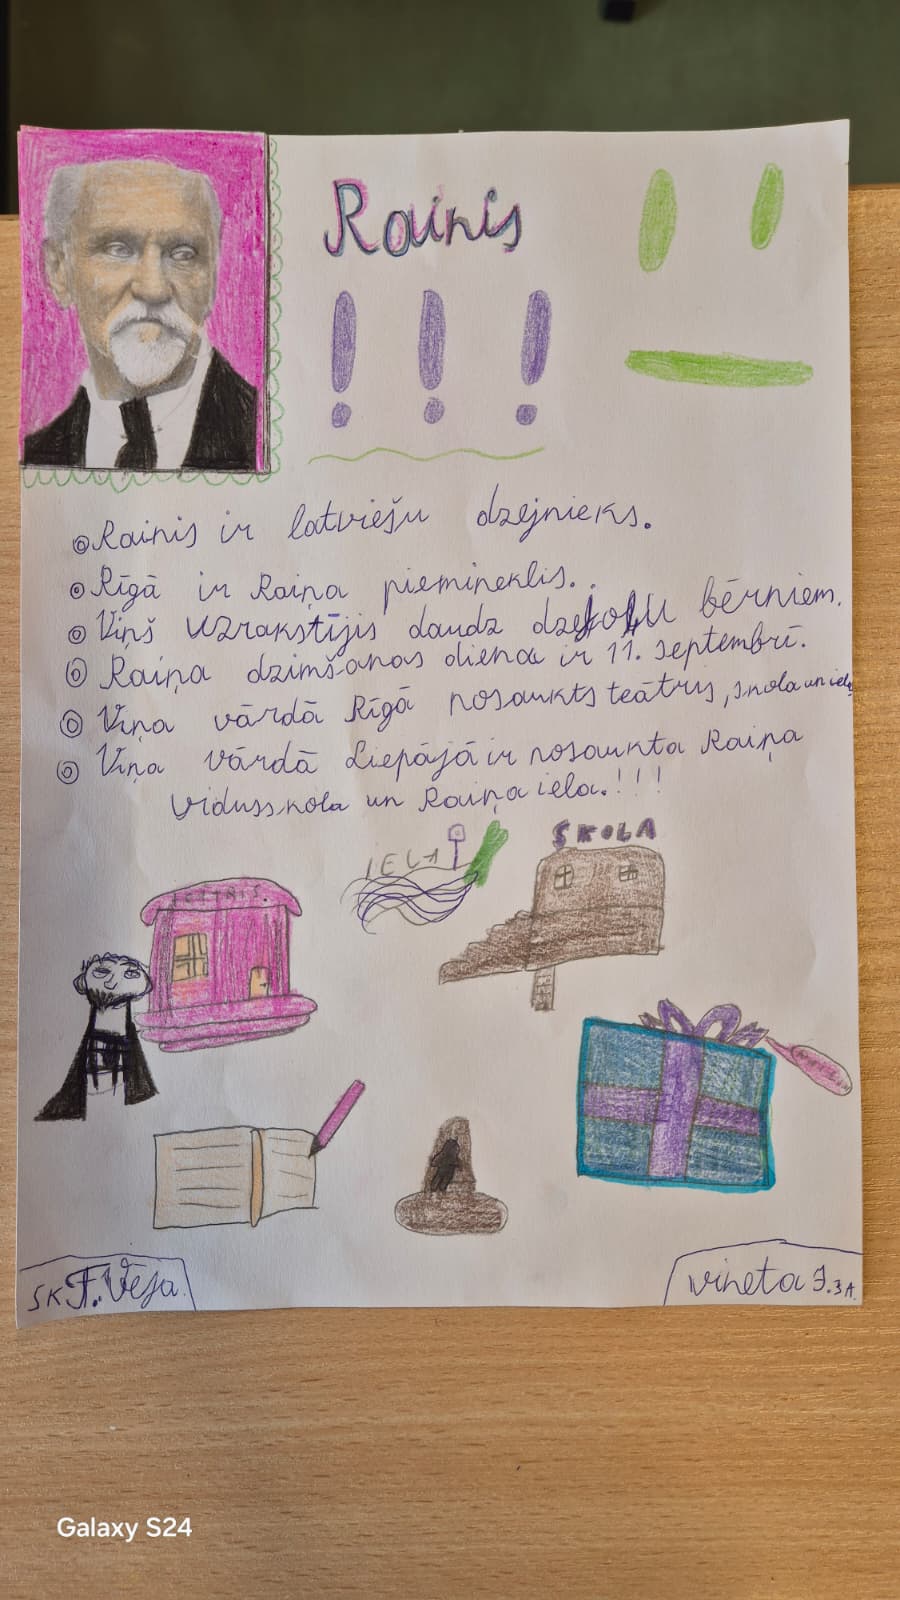 Rainis
! ! !
Rainis ir latviešu dzejnieks.
Rīgā ir Raiņa piemineklis.
Viņš uzrakstījis daudz dzejoļu bērniem.
Raiņa dzimšanas diena ir 11. septembrī.
Viņa vārdā Rīgā nosaukts teātris, skola un iela
Viņa vārdā Liepājā ir nosaukta Raiņa
vidusskola un Raiņa iela.!!!
IELA
SKOLA
TEĀTRIS.
sk. F. Veja.
Vineta J. 3A.
Galaxy S24